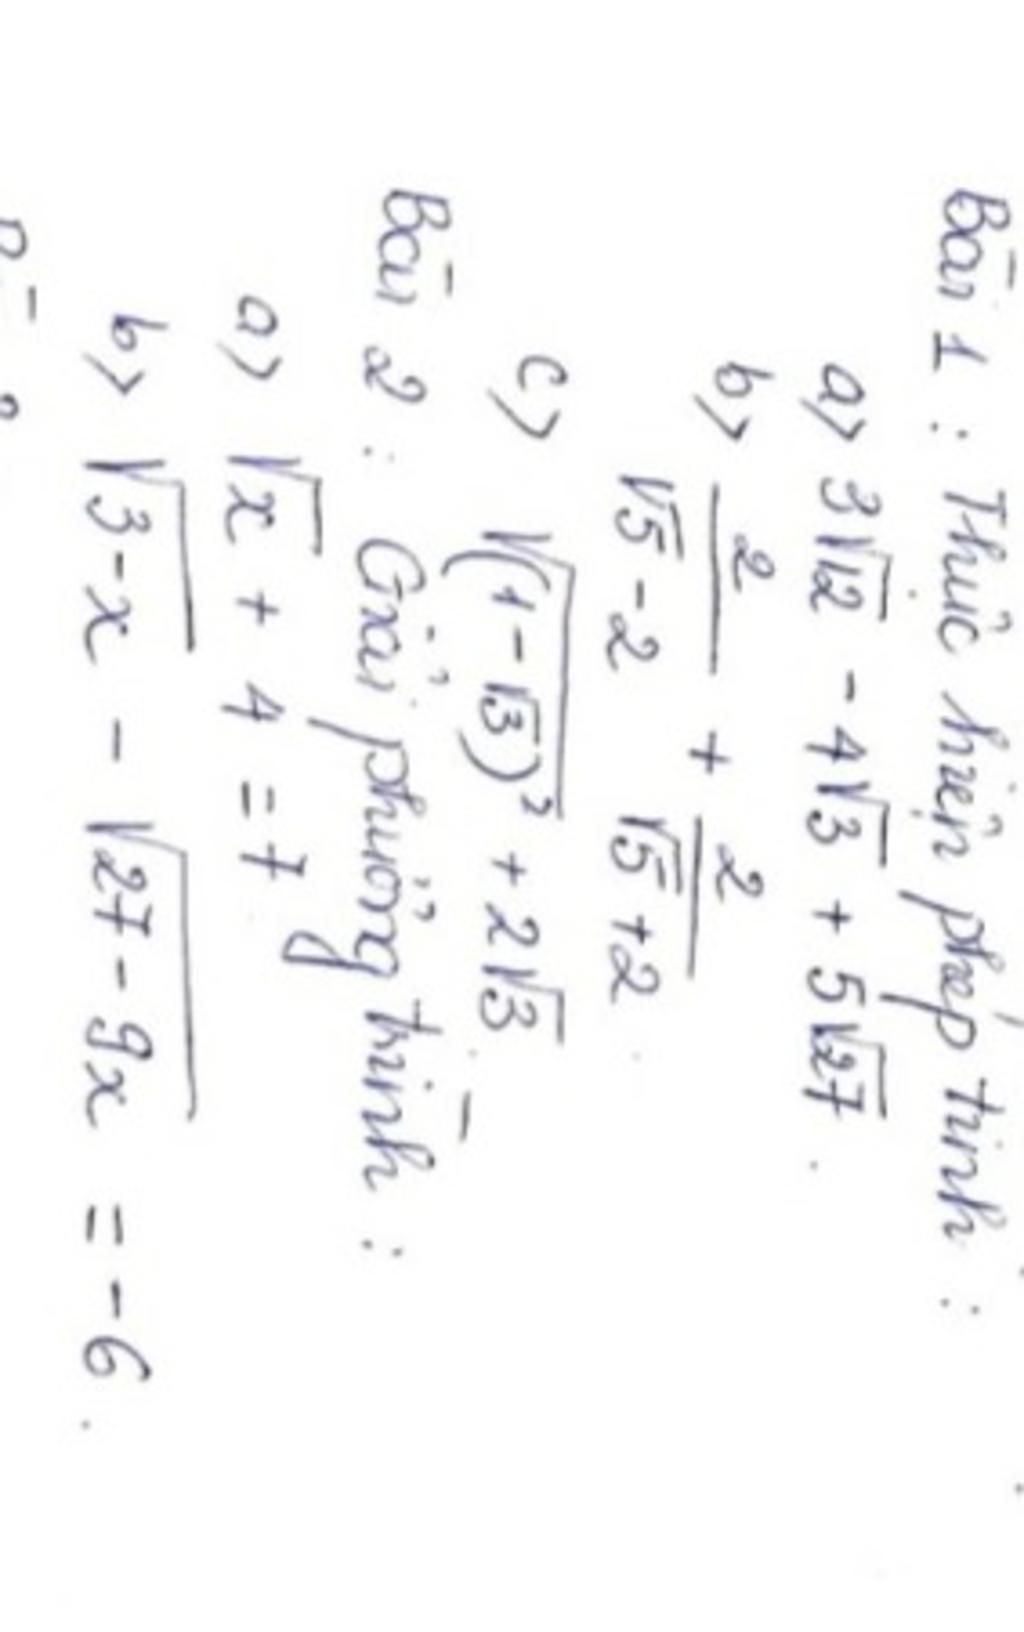 Bài 1 : Thực hiện phép tính :
a> 3√12 - 4√3 + 5√27 .
b> 2/(√5 - 2) + 2/(√5 + 2)
c> √(1 - √3)² + 2√3
Bài 2 : Giải phương trình :
a> √x + 4 = 7
b> √3-x - √27-9x = -6 .